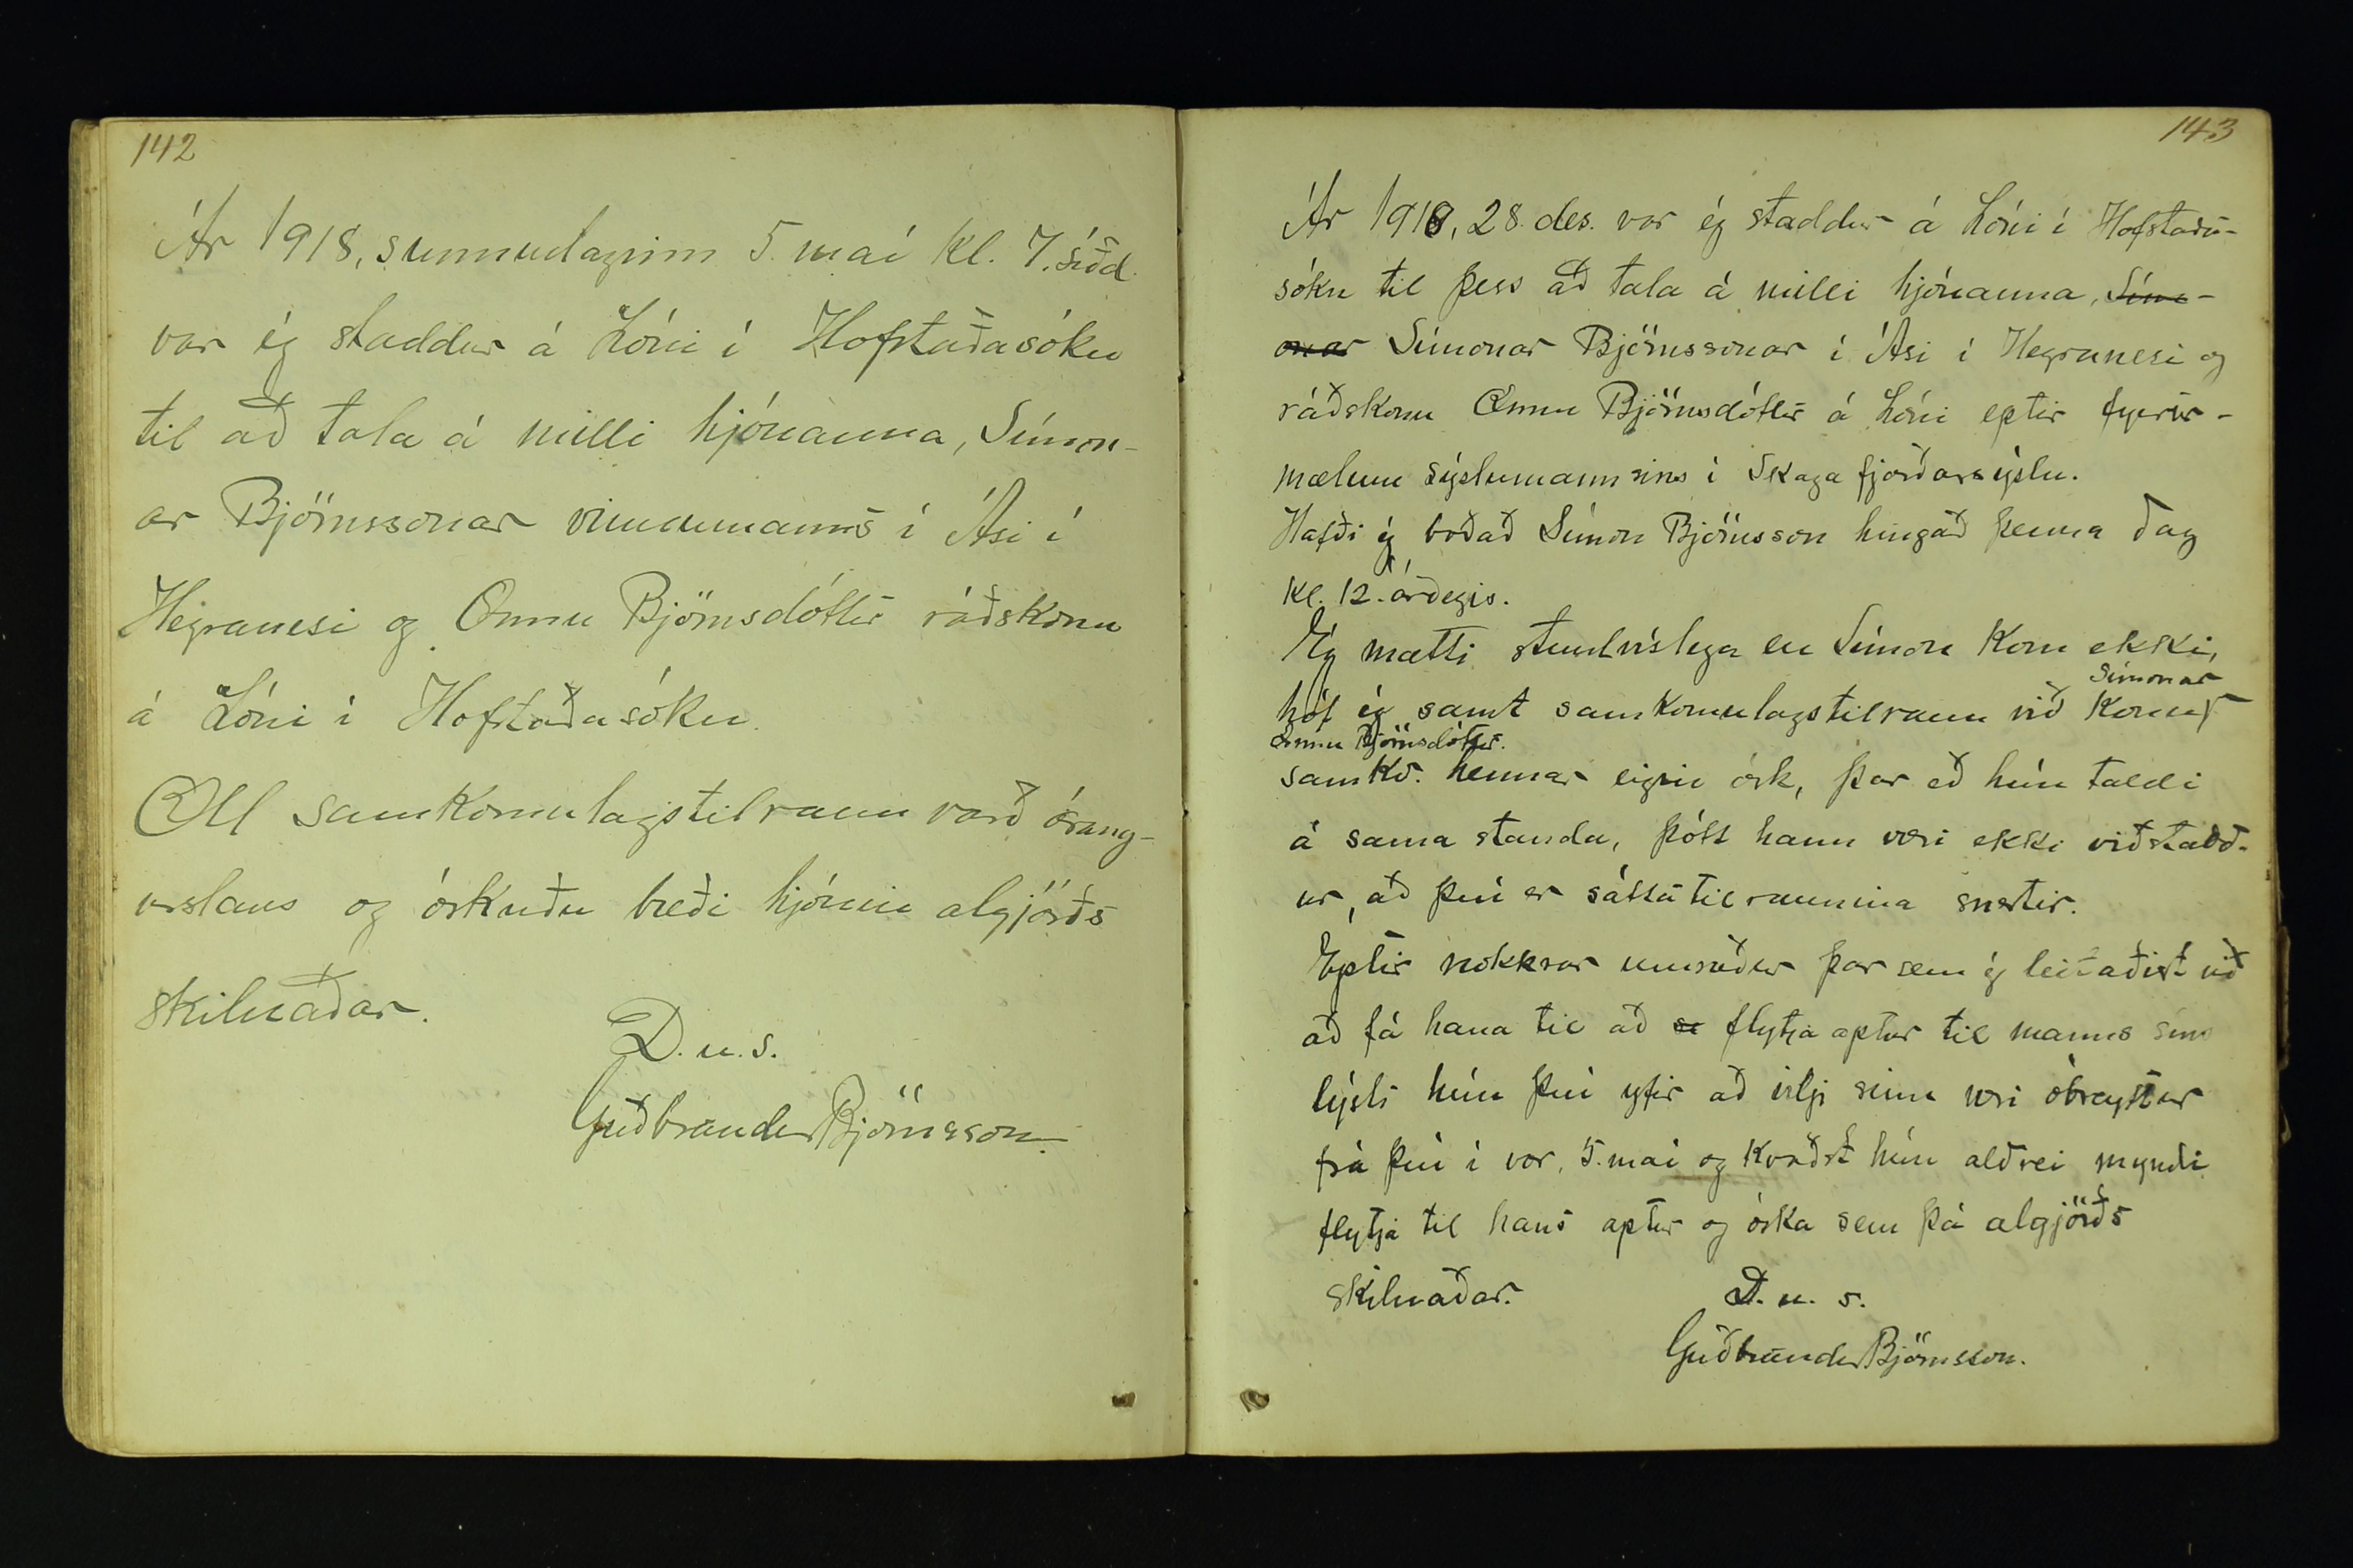 142
Ár 1918, sunnudaginn 5. maí kl. 7. síðd.
var ég staddur á Lóni í Hofstaðasókn
til að tala á milli hjónanna, Símon-
ar Björnssonar vinnumanns í Ási í
Hegranesi og Önnu Björnsdóttir ráðskonu
á Lóni í Hofstaðasókn.
Öll samkomulagstilraun varð árang-
urslaus og óskuðu bæði hjónin algjörðs
skilnaðar.
D. u. s.
Guðbrandur Björnsson.
143
Ár 1918, 28. des. var ég staddur á Lóni í Hofstaða-
sókn til þess að tala á milli hjónanna, Sím-
onar Símonar Björnssonar í Ási í Hegranesi og
ráðskonu Önnu Björnsdóttir á Lóni eptir fyrir-
mælum sýslumannsins í Skagafjarðarsýslu.
Hafði ég boðað Símon Björnsson hingað þenna dag
kl. 12. árdegis.
Ég mætti stundvíslega en Símon kom ekki,
hóf ég samt samkomulagstilraun við konu Símonar
Önnu Björnsdóttir.
samkv. hennar eigin ósk, þar eð hún taldi
á sama standa, þótt hann væri ekki viðstadd-
ur, að því er sáttatilraunina snertir.
Eptir nokkrar umræður þar sem ég leitaðist við
að fá hana til að se flytja aptur til manns síns
lýsti hún því yfir að vilji sinn væri óbreyttur
frá því í vor, 5. maí og kvaðst hún aldrei myndi
flytja til hans aptur og óska sem þá algjörðs
skilnaðar.
D. u. s.
Guðbrandur Björnsson.